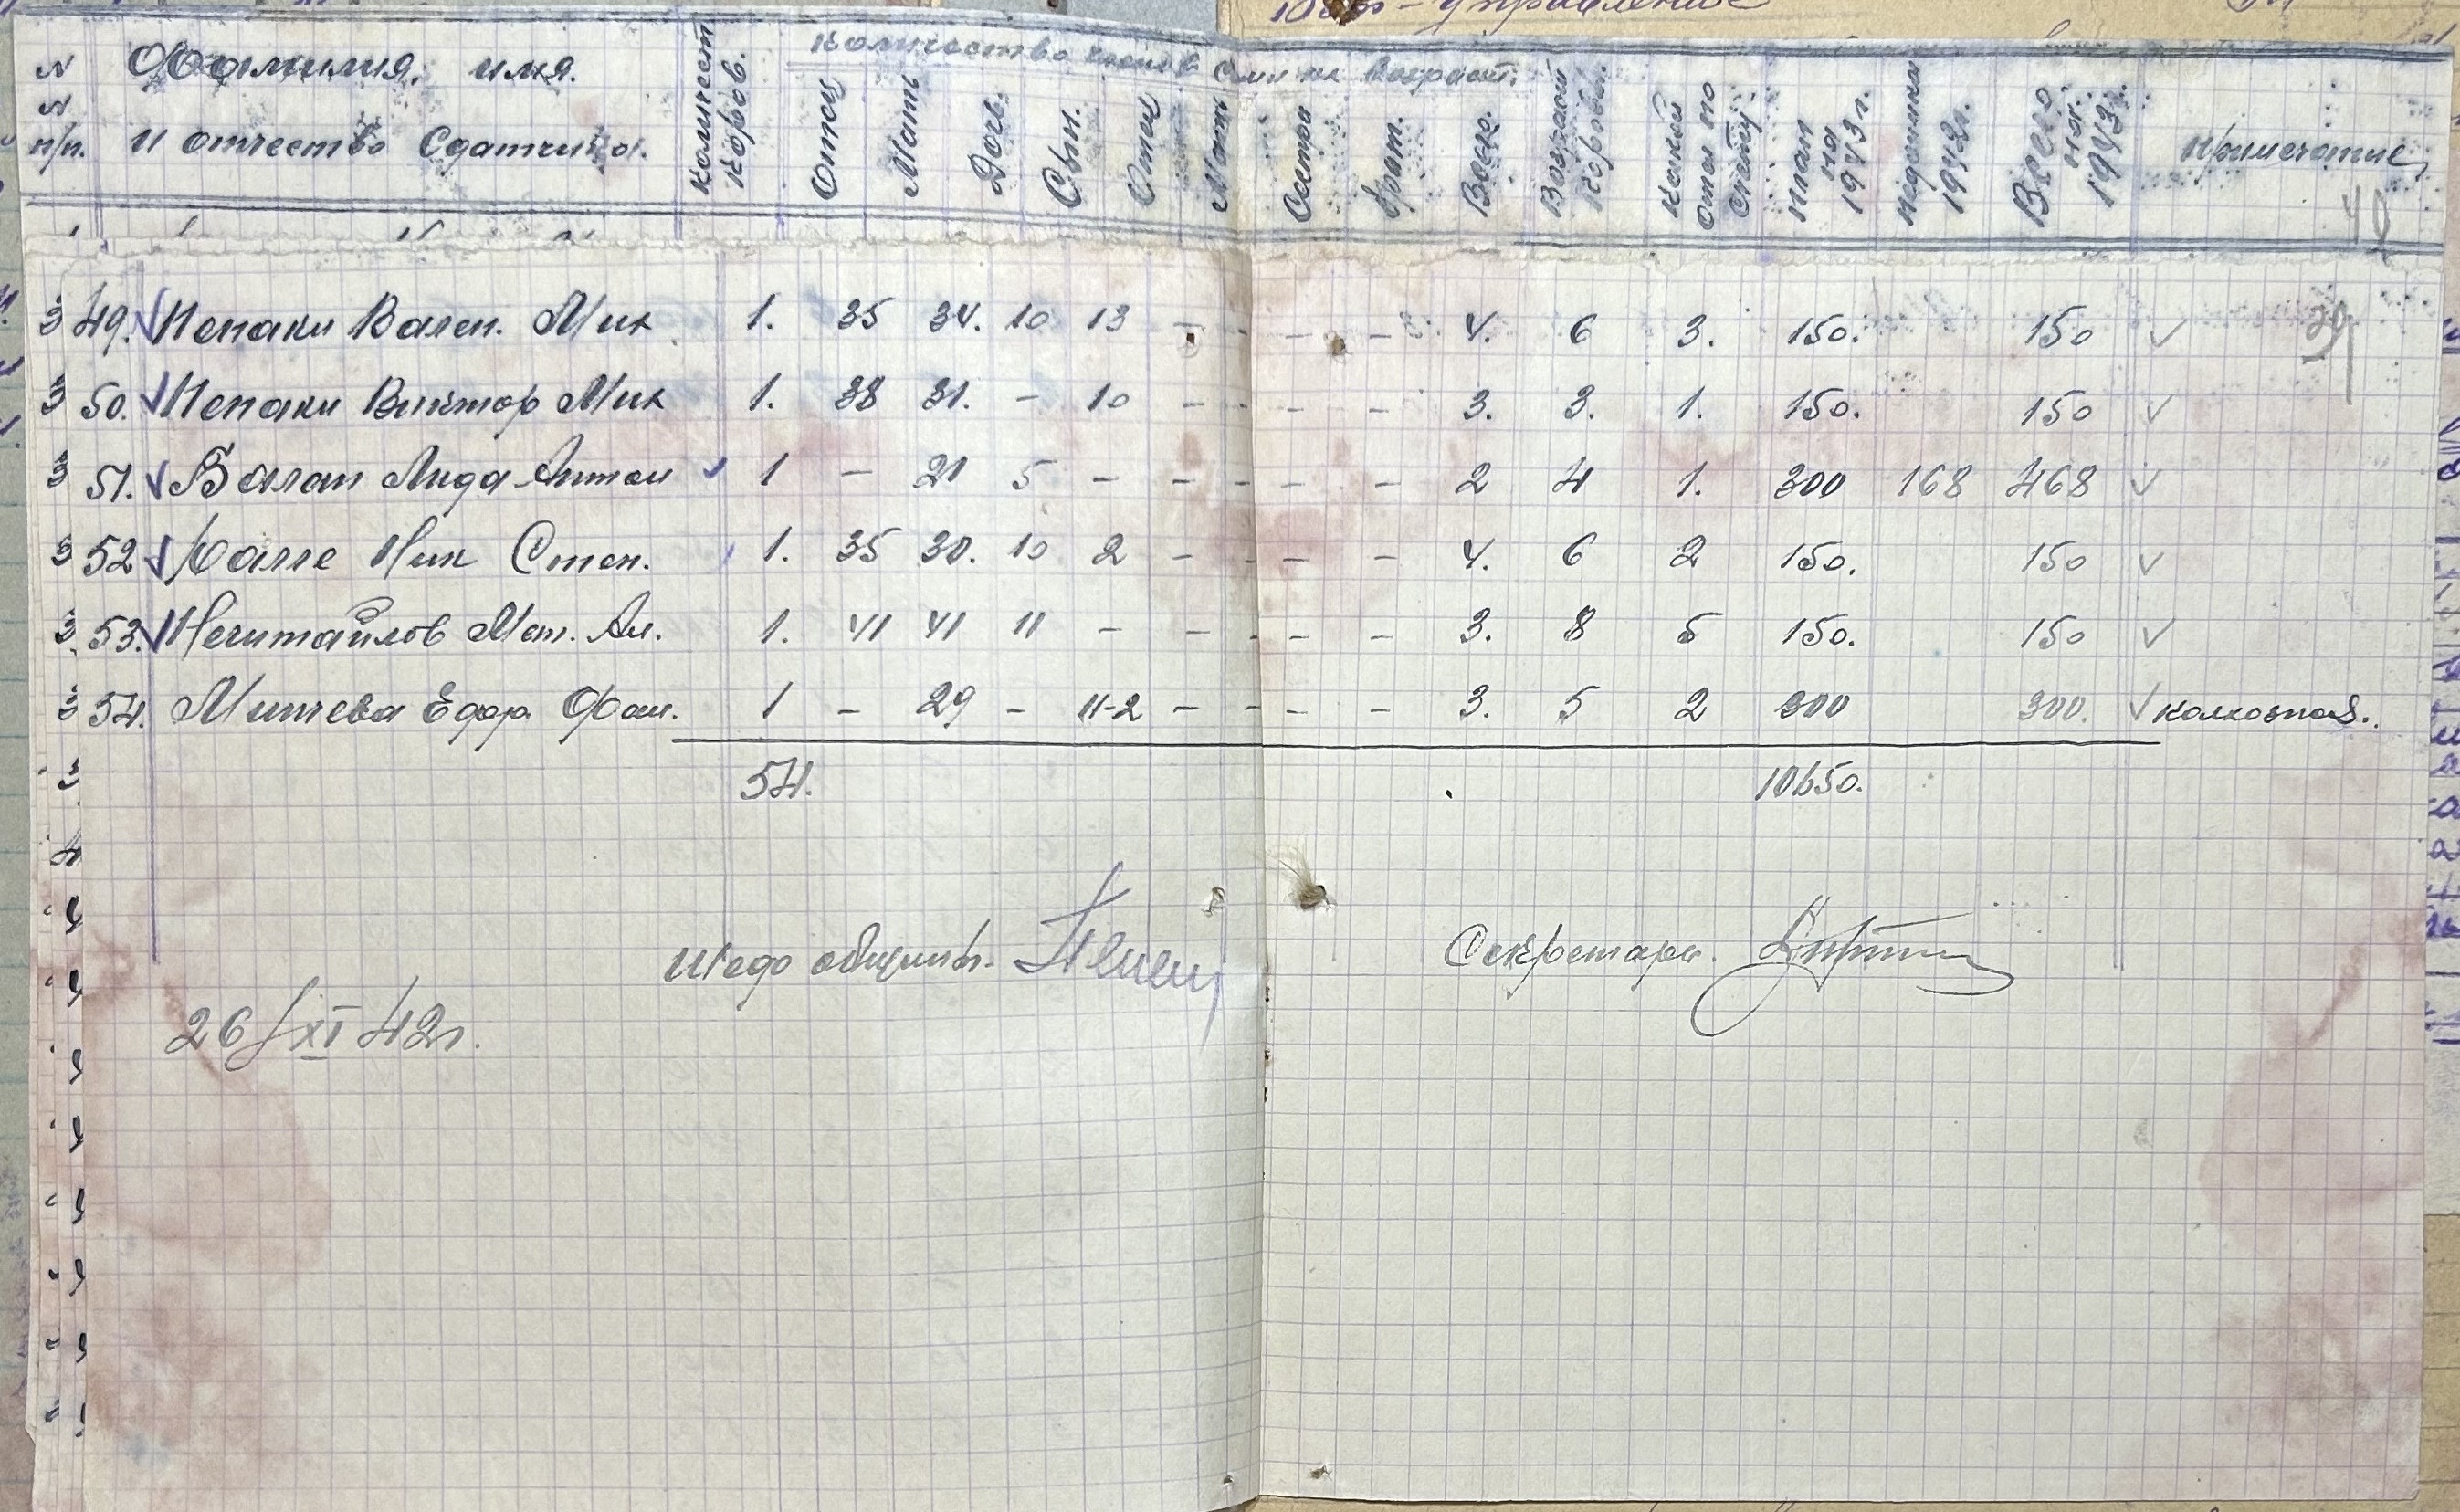 управление
N N п/п. Фамилия, имя и отчество Сдатчика. Количест Коров. Количество членов семьи их возраст. Отец Мать Дочь. Сын. Отец Мать Сестра брат. Всего. Возраст Коровы. Какой отел по счету. План на 1943 г. недоимки 1942 г. Всего на 1943 г. примечание
40
49. Пепаки Вален. Мих 1. 35 34. 10 13 - - - - 4. 6 3. 150. 150 ✓ 39
50. Пепаки Виктор Мих 1. 38 31. - 10 - - - - 3. 3. 1. 150. 150 ✓
51. Балан Лида Антон ✓ 1 - 21 5 - - - - - 2 4 1. 300 168 468 ✓
52 Калге Ник Степ. 1. 35 30. 10 2 - - - - 4. 6 2 150. 150 ✓
53. Нечитайлов Мет. Ал. 1. 41 41 11 - - - - - 3. 8 5 150. 150 ✓
54. Минчева Едор Фом. 1 - 29 - 11-2 - - - - 3. 5 2 300 300. ✓ колхозная.
54. 10650.
Секретарь.
26/XI 42г.